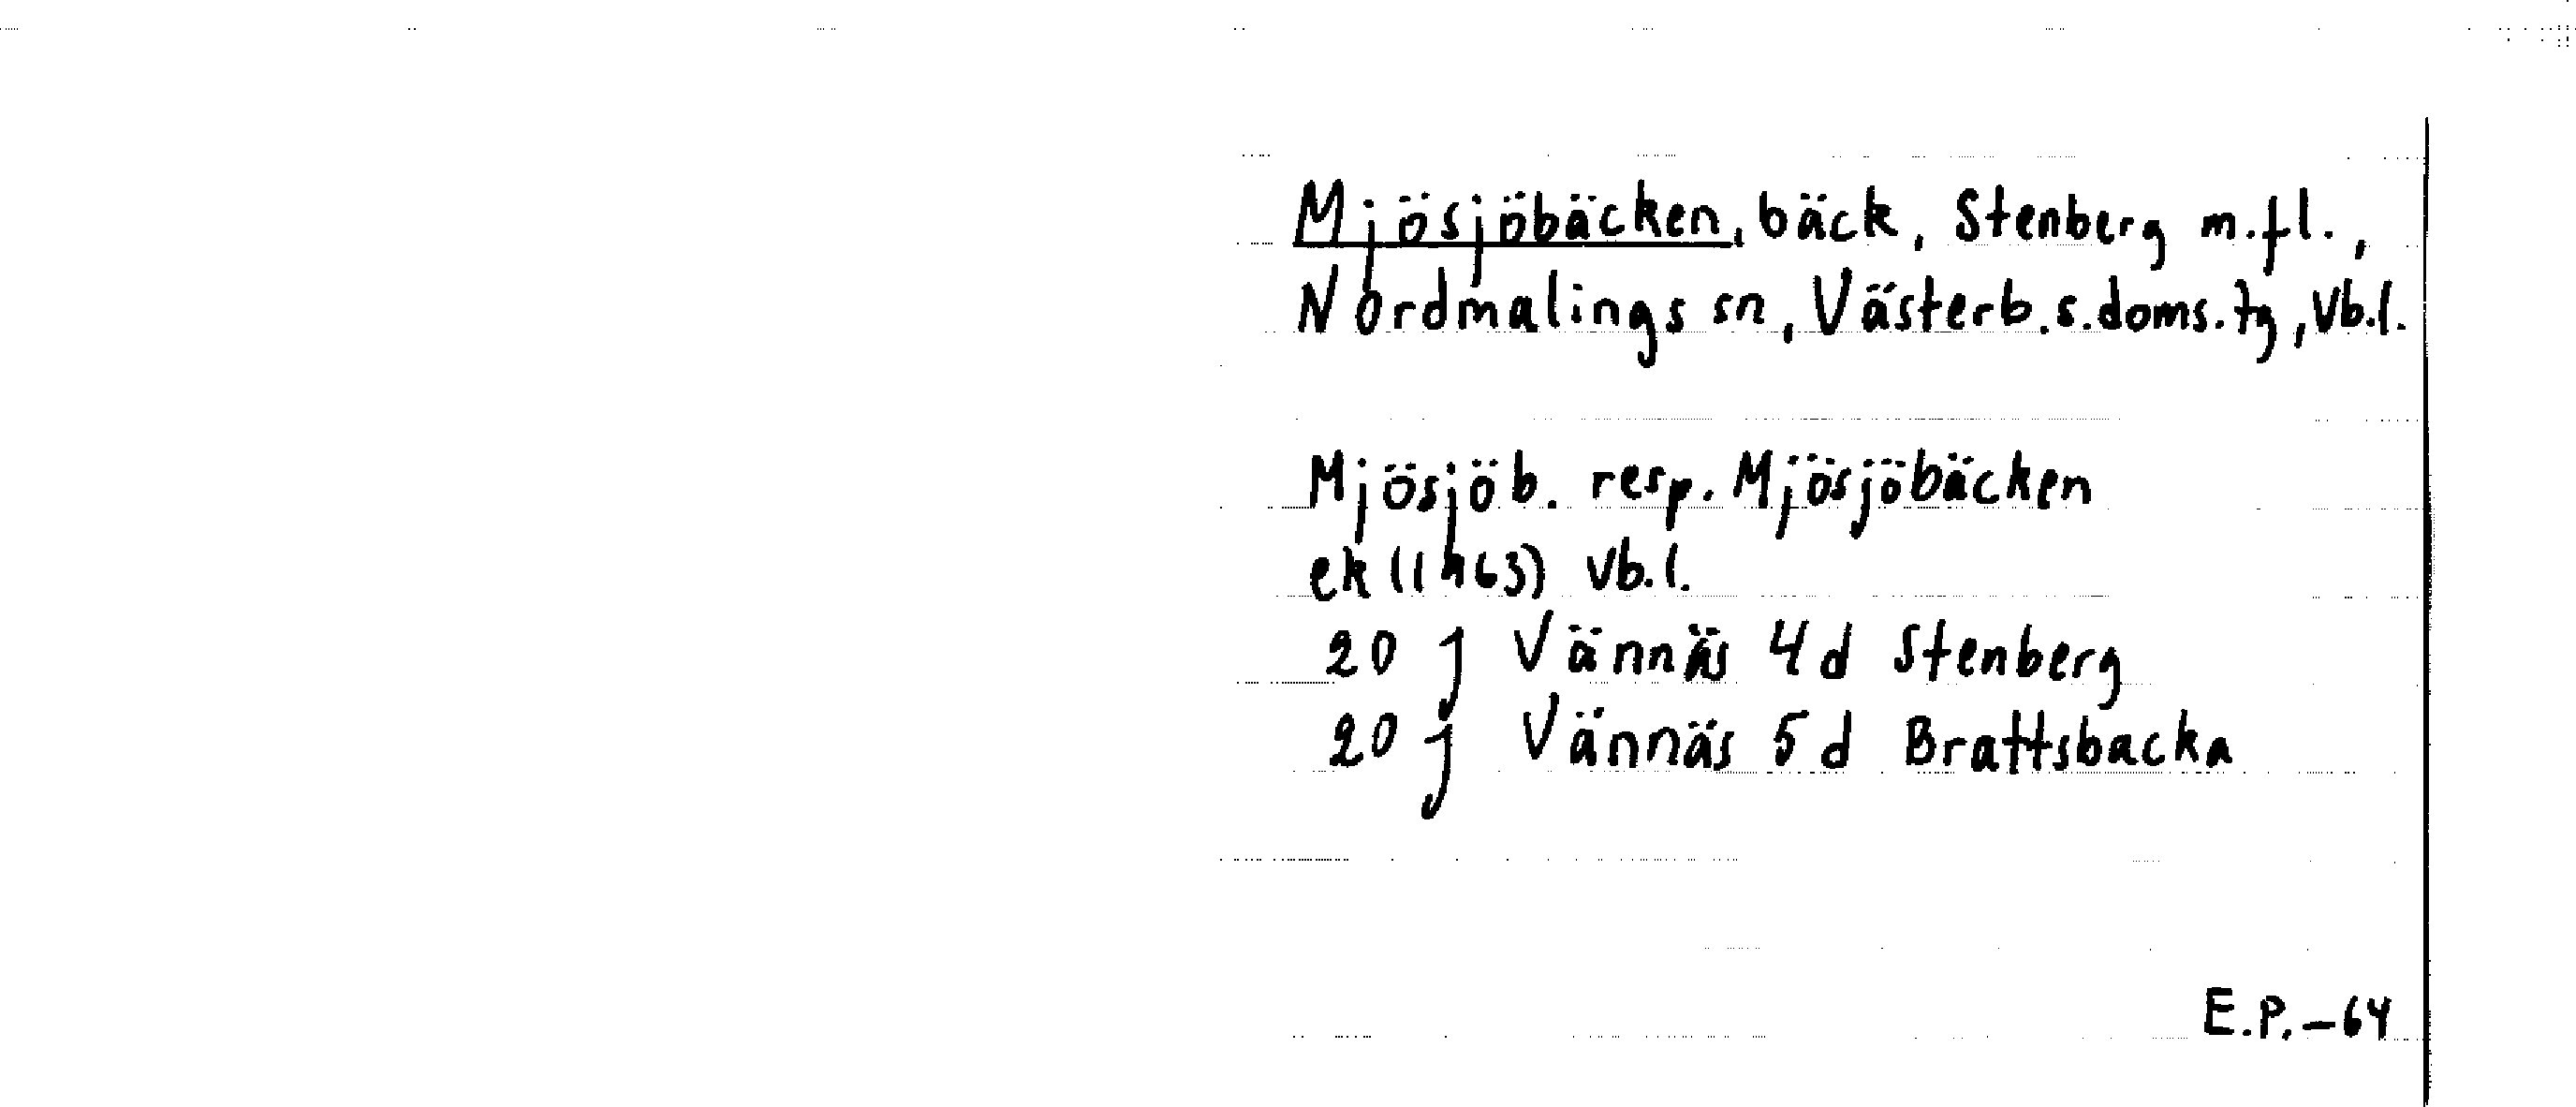 Mjösjöbäcken, bäck, Stenberg m.fl.,
Nordmalings sn, Västerb.s.doms.tg, Vb.l.
Mjösjöb. resp. Mjösjöbäcken
ek (1963) Vb.l.
20 J Vännäs 4d Stenberg
20 J Vännäs 5d Brattsbacka
E.P.-64